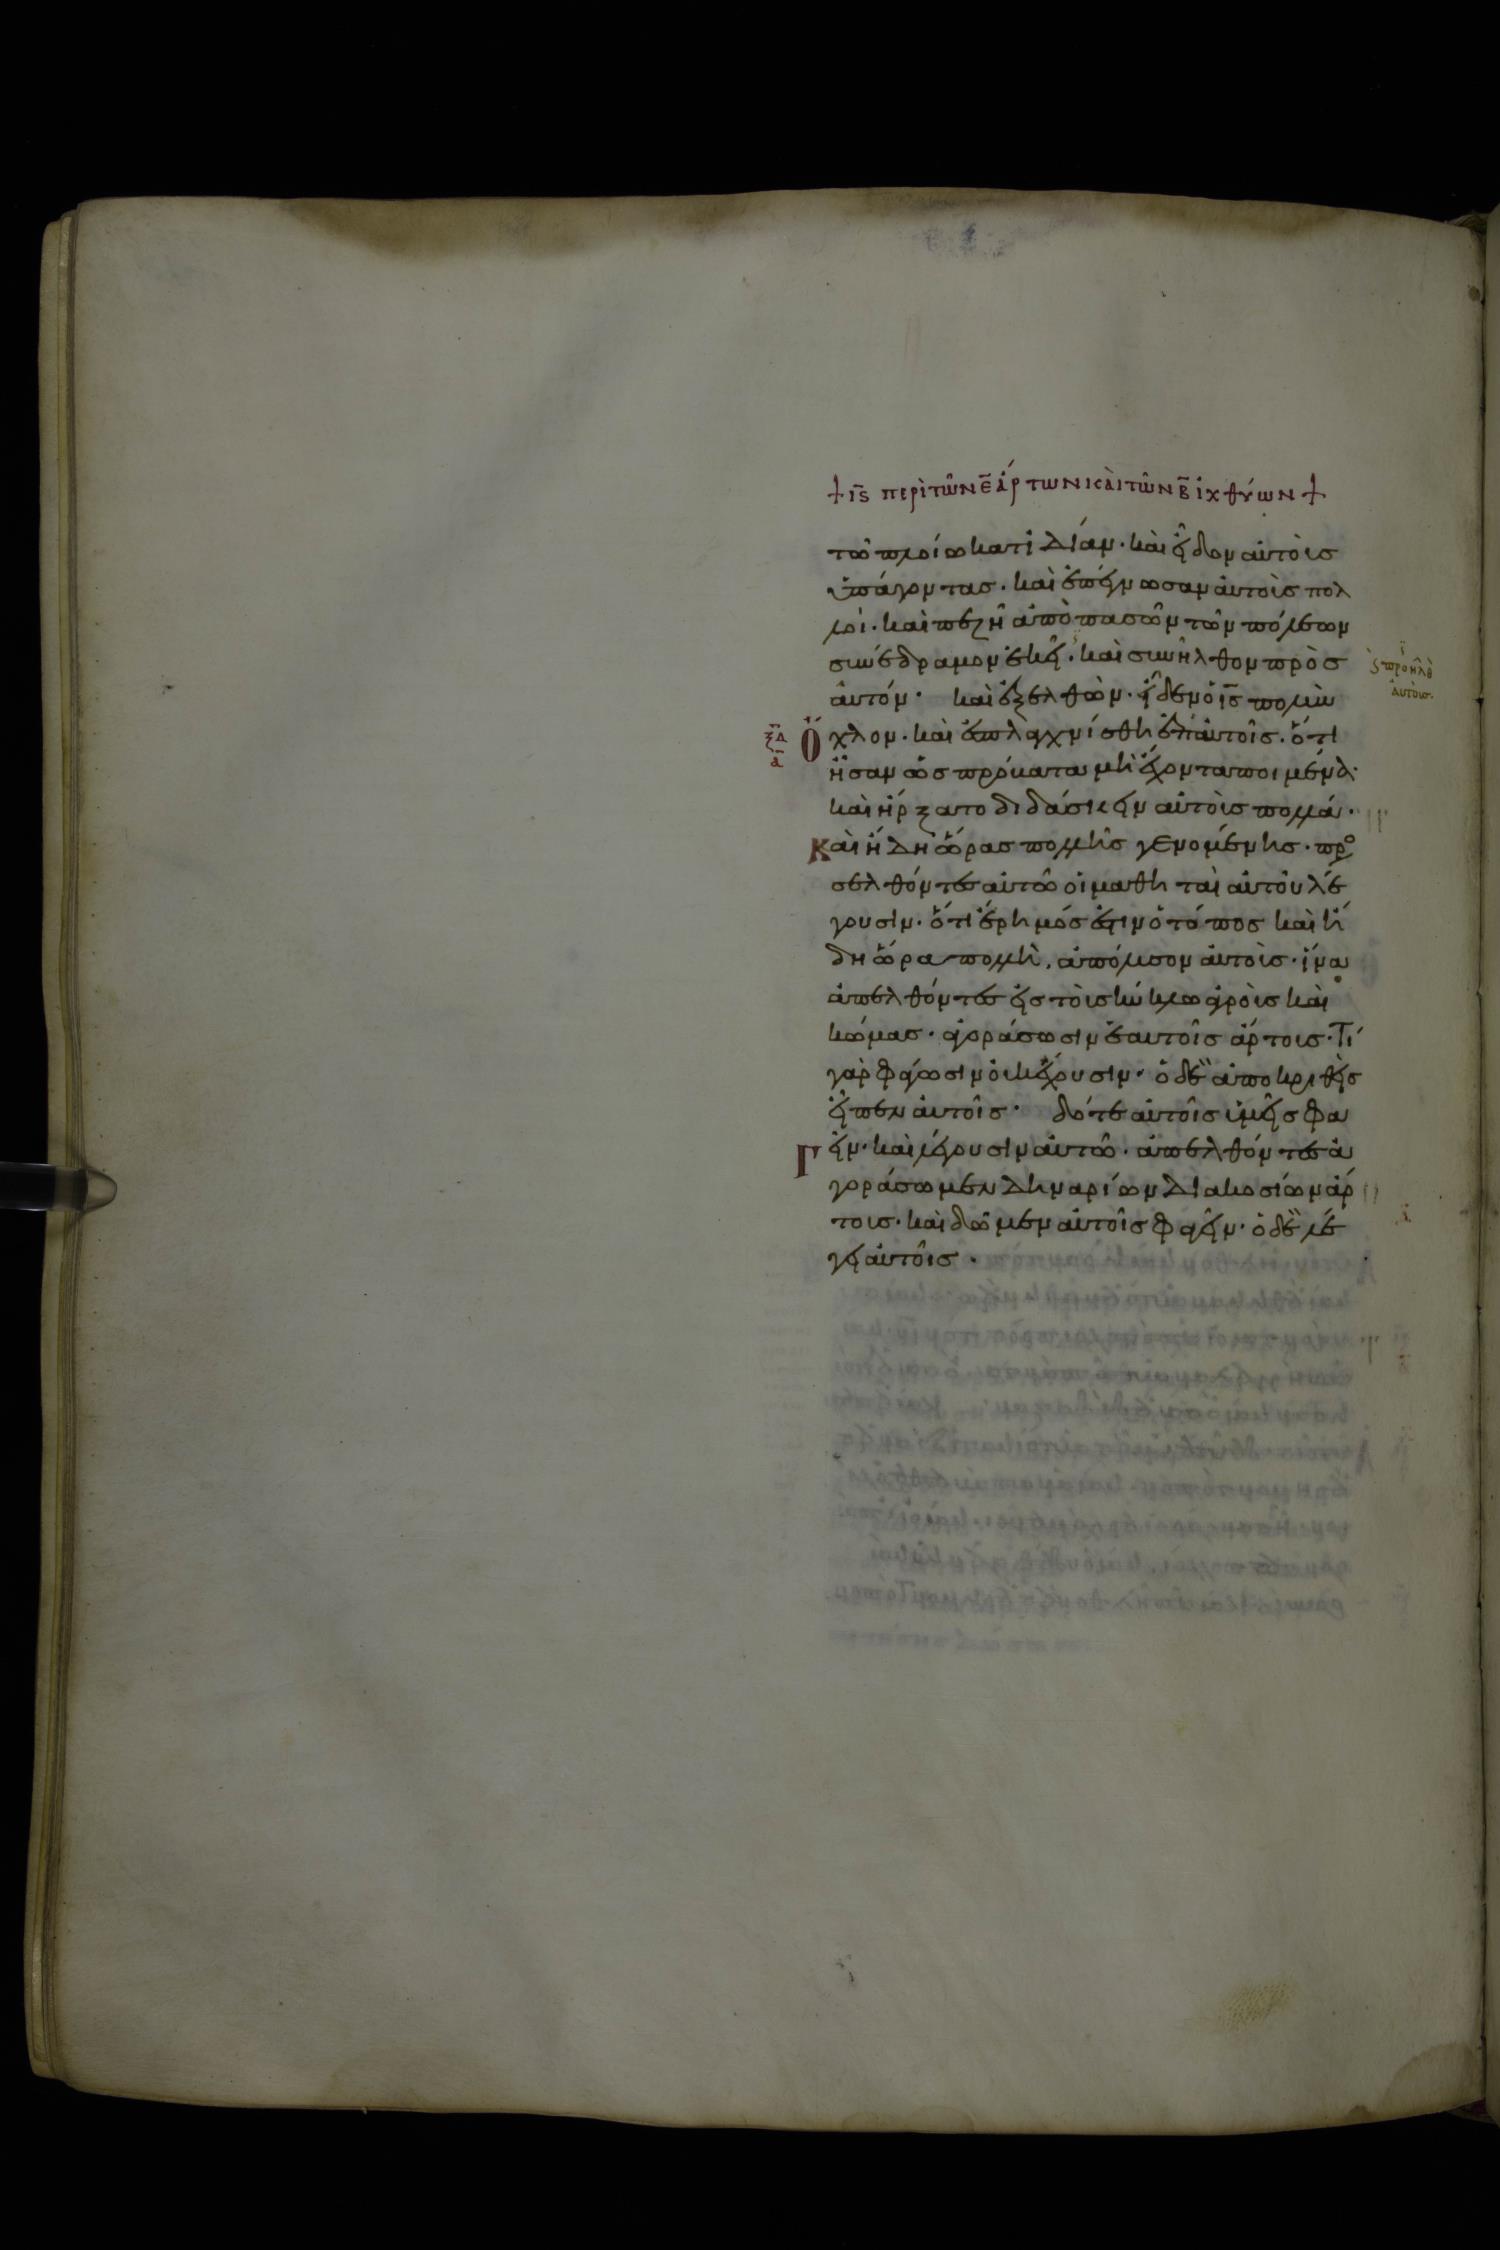 + ιϛ̄ περὶ τῶν ε̄ ἄρτων καὶ τῶν β̄ ἰχθύων +
τῶ πλοίω κατιδίαν· καὶ εἶδον αὐτοὺς
ὑπάγοντας· καὶ ἐπέγνωσαν αὐτοὺς πολ
λοί· καὶ πεζῆ ἀπὸ πασῶν τῶν πόλεων
συνέδραμον ἐκεῖ· καὶ συνῆλθον πρὸς
αὐτόν· καὶ ἐξελθὼν· εἶδεν ὁ ῑς̄ πολὺν
ὄχλον· καὶ ἐσπλαγχνίσθη ἐπ' αὐτοῖς· ὅτι
ἦσαν ὡς πρόβατα μὴ ἔχοντα ποιμένα·
καὶ ἤρξατο διδάσκειν αὐτοὺς πολλά·
Καὶ ἤδη ὥρας πολλῆς γενομένης· προ
σελθόντες αὐτῶ οἱ μαθηταὶ αὐτοῦ λέ
γουσιν· ὅτι ἔρημός ἐστιν ὁ τόπος καὶ ἤ
δη ὥρα πολλὴ, ἀπόλυσον αὐτοὺς· ἵνα
ἀπελθόντες εἰς τοὺς κύκλω ἀγροὺς καὶ
κώμας· ἀγοράσωσιν ἑαυτοῖς ἄρτους· Τί
γὰρ φάγωσιν οὐκ ἔχουσιν· ὁ δὲ ἀποκριθεὶς
εἶπεν αὐτοῖς· δότε αὐτοῖς ὑμεῖς φα
γεῖν· καὶ λέγουσιν αὐτῶ· ἀπελθόντες ἀ
γοράσωμεν δηναρίων διακοσίων ἄρ
τους· καὶ δῶμεν αὐτοῖς φαγεῖν· ὁ δὲ λέ
γει αὐτοῖς·
ξ̄δ̄
ᾱ
προῆλθ
αὐτους